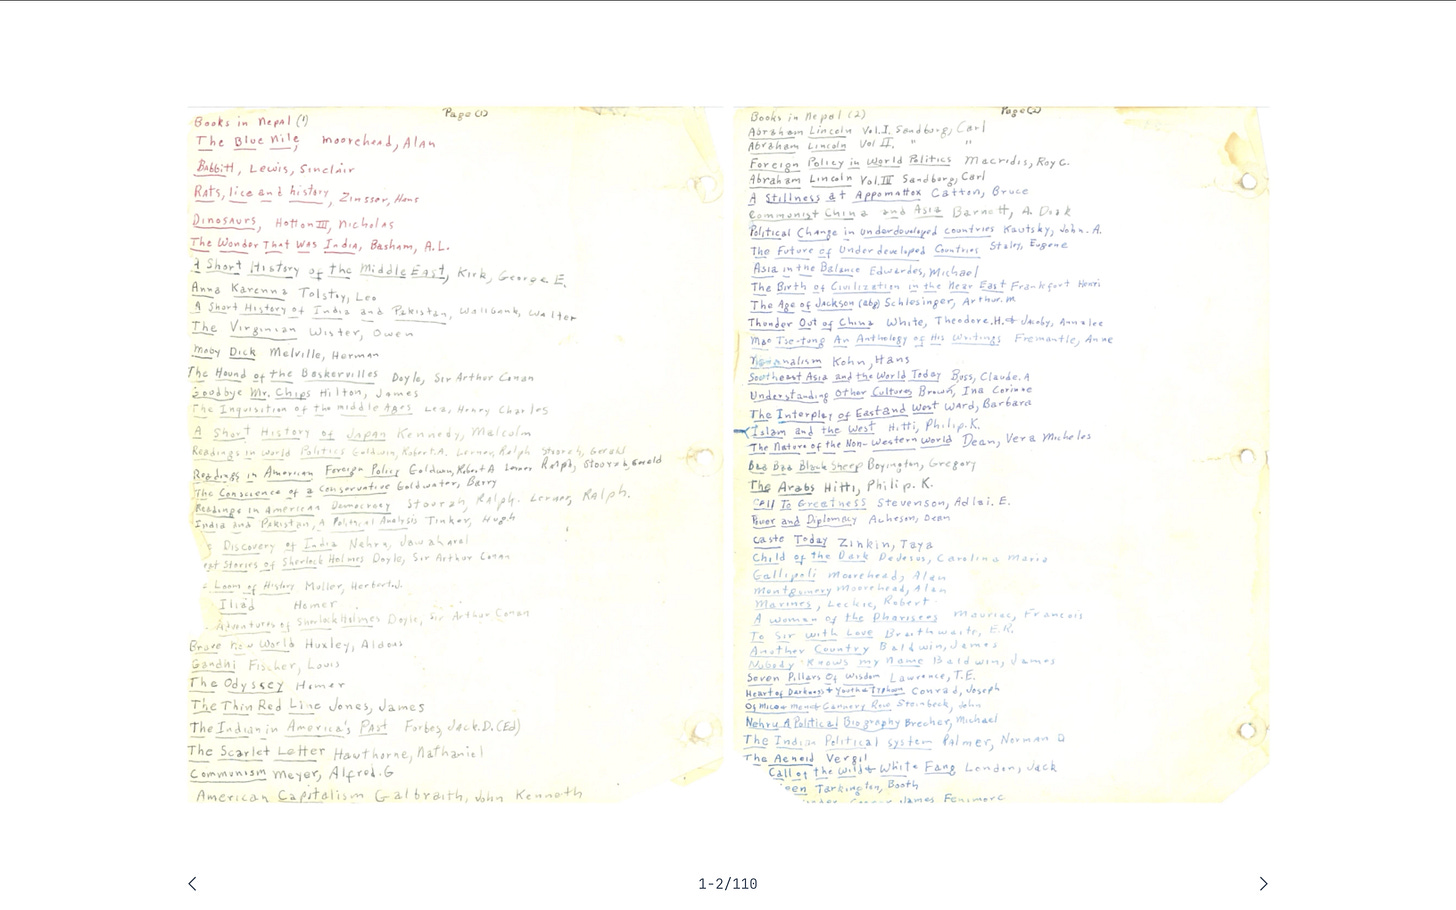 Page (1)
Books in Nepal (1)
The Blue Nile, Moorehead, Alan
Babbitt, Lewis, Sinclair
Rats, lice and history, Zinsser, Hans
Dinosaurs, Hotton III, Nicholas
The Wonder That Was India, Basham, A.L.
A Short History of the Middle East, Kirk, George E.
Anna Karenna Tolstoy, Leo
A Short History of India and Pakistan, Wallbank, Walter
The Virginian Wister, Owen
Moby Dick Melville, Herman
The Hound of the Baskervilles Doyle, Sir Arthur Conan
Goodbye Mr. Chips Hilton, James
The Inquisition of the middle Ages Lea, Henry Charles
A Short History of Japan Kennedy, Malcolm
Readings in World Politics Goldwin, Robert A. Lerner, Ralph Stourzh, Gerald
Readings in American Foreign Policy Goldwin, Robert A Lerner Ralph, Stourzh, Gerald
The Conscience of a Conservative Goldwater, Barry
Readings in American Democracy Stourzh, Ralph. Lerner, Ralph.
India and Pakistan, A Political Analysis Tinker, Hugh
Discovery of India Nehru, Jawaharal
est Stories of Sherlock Holmes Doyle, Sir Arthur Conan
Loom of History Muller, Herbert J.
Iliad Homer
Adventures of Sherlock Holmes Doyle, Sir Arthur Conan
Brave New World Huxley, Aldous
Gandhi Fischer, Louis
The Odyssey Homer
The Thin Red Line Jones, James
The Indian in America's Past Forbes, Jack. D. (Ed)
The Scarlet Letter Hawthorne, Nathaniel
Communism Meyer, Alfred. G
American Capitalism Galbraith, John Kenneth
Page (2)
Books in Nepal (2)
Abraham Lincoln Vol. I. Sandburg, Carl
Abraham Lincoln Vol II. " "
Foreign Policy in World Politics Macridis, Roy C.
Abraham Lincoln Vol. III Sandburg, Carl
A Stillness at Appomattox Catton, Bruce
Communist China and Asia Barnett, A. Doak
Political Change in Underdeveloped countries Kautsky, John. A.
The Future of Underdeveloped Countries Staley, Eugene
Asia in the Balance Edwardes, Michael
The Birth of Civilization in the Near East Frankfort Henri
The Age of Jackson (abg) Schlesinger, Arthur. M
Thunder Out of China White, Theodore. H. & Jacoby, Annalee
Mao Tse-tung An Anthology of His Writings Fremantle, Anne
Nationalism Kohn, Hans
Southeast Asia and the World Today Buss, Claude. A
Understanding Other Cultures Brown, Ina Corinne
The Interplay of East and West Ward, Barbara
Islam and the West Hitti, Philip. K.
The Nature of the Non-Western World Dean, Vera Micheles
Baa Baa Black Sheep Boyington, Gregory
The Arabs Hitti, Philip. K.
Call To Greatness Stevenson, Adlai. E.
Power and Diplomacy Acheson, Dean
Caste Today Zinkin, Taya
Child of the Dark Dedesus, Carolina Maria
Gallipoli Moorehead, Alan
Montgomery Moorehead, Alan
Marines, Leckie, Robert
A Woman of the Pharisees Mauriac, Francois
To Sir with Love Braithwaite, E.R.
Another Country Baldwin, James
Nobody Knows my Name Baldwin, James
Seven Pillars of Wisdom Lawrence, T.E.
Heart of Darkness & Youth & Typhoon Conrad, Joseph
Of Mice & Men & Cannery Row Steinbeck, John
Nehru A Political Biography Brecher, Michael
The Indian Political System Palmer, Norman D
The Aeneid Vergil
Call of the Wild & White Fang London, Jack
een Tarkington, Booth
James Fenimore
1-2/110